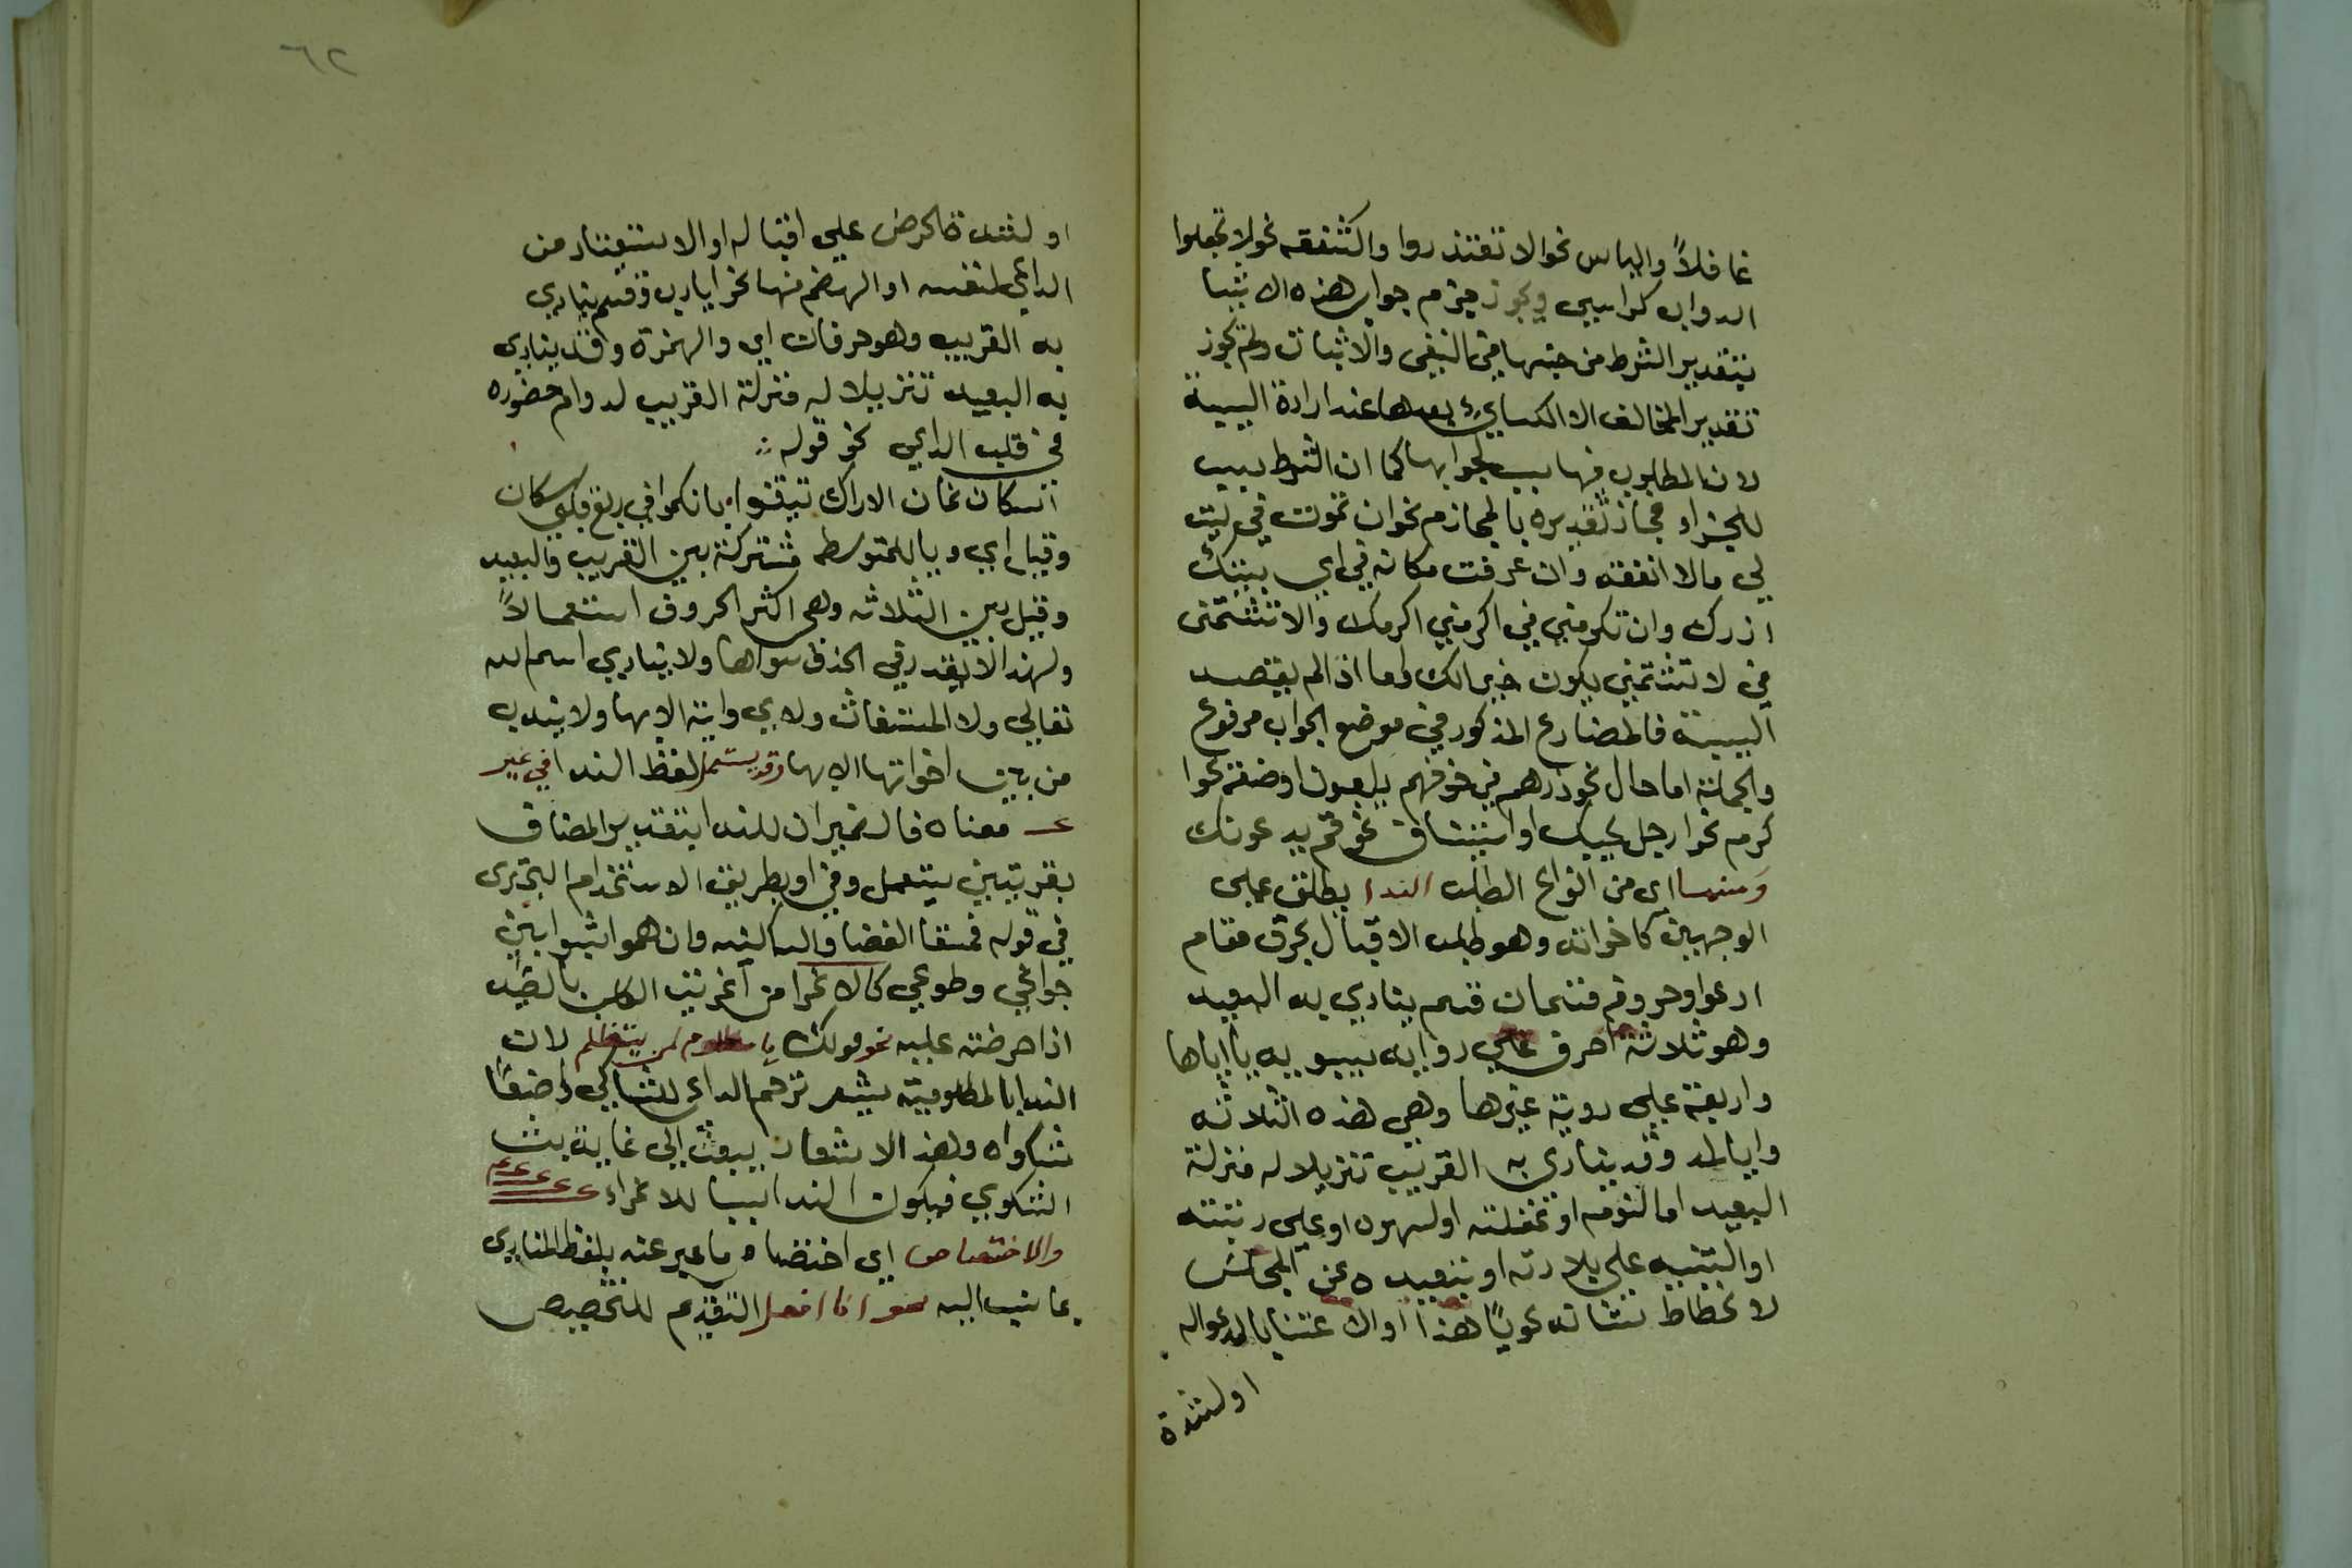 غافلاً والياس نحو لا تعتذروا والشفقه نحو لا تجعلوا
الدواب كراسي ويجوز جزم جواب هذه الاشيا
بتقدير الشرط من جنسها في النفي والاثبات ولم يجوز
تقدير المخالف الا الكسايّ بعدها عند ارادة السببية
لان المطلوب فيها سبب لجوابها كما ان الشرط سبب
للجزاء فجاز تقديره بالمجازم نحو ان تموت في ليت
لي مالا انفقه وان عرفت مكانه في اين بيتك
ازرك وان تكرمني في اكرمني اكرمك والا تشتمني
في لا تشتمني يكون خيرا لك واما اذا لم يقصد
السببية فالمضارع المذكور في موضع الجواب مرفوع
والجملة اما حال نحو ذرهم في خوضهم يلعبون او صفة نحوا
كرم نحوا رجل يحبك او استيناف نحو قم يدعونك
ومنها اى من انواع الطلب الندا يطلق على
الوجهين كاخواته وهو طلب الاقبال بحرف مقام
ادعوا وحروفه قسمان قسم ينادي به البعيد
وهو ثلاثة احرف علي رواية سيبويه يا ايا هيا
واربعة علي روية غيرها وهي هذه الثلاثه
وايا لمد وقد ينادى به القريب تنزيلا له منزلة
البعيد اما لنومه او غفلته او لسهوه او على رتبته
او التنبيه على بلادته او تبعيده عن المجلس
لانحطاط شانه نحو يا هذا او الاعتنا بالمدعوله
اولشدة
٦٢
او لشدة الحرص علي اقباله او الاستبعاد من
الداعي لنفسه او الهضم منها نحو ايا رب وقسم ينادي
به القريب وهو حرفان اي والهمزة وقد ينادي
به البعيد تنزيلا له منزلة القريب لدوام حضوره
في قلب الداعي نحو قوله
اسكان نعمان الاراك تيقنوا بانكموا في ربع قلبي سكان
وقيل اي ويا للمتوسط مشتركة بين القريب والبعيد
وقيل بين الثلاثه وهي اكثر الحروف استعمالاً
ولهذا لا يقدر في الحذف سواها ولا ينادي اسم الله
تعالي ولا المستغاث ولا اي وايتها الا بها ولا يندب
من بين اخواتها الا بها وقد يستعمل لفظ الندا في غير
معناه فالضميران للندا بتقدير المضاف
بقرينتين يستعمل وفي او بطريق الاستخدام البحترى
في قوله فسقا الغضا والساكنيه وان هموا شبوه بين
جوانحي وضلوعي كالاغرا من اغريت الكلب بالصيد
اذا حرضته عليه نحو قولك يا مظلوم لمن يتظلم لان
الندا بالمظلومية يشعر ترحم الداعى للشاكى واضعًا
شكواه وهذا الاشعار يبعث الى غاية بث
الشكوي فيكون الندا سببا للاغراء
والاختصاص اي اختصاص ما عبر عنه بلفظ المنادى
بما نسب اليه نحو انا افعل التقديم للتخصيص